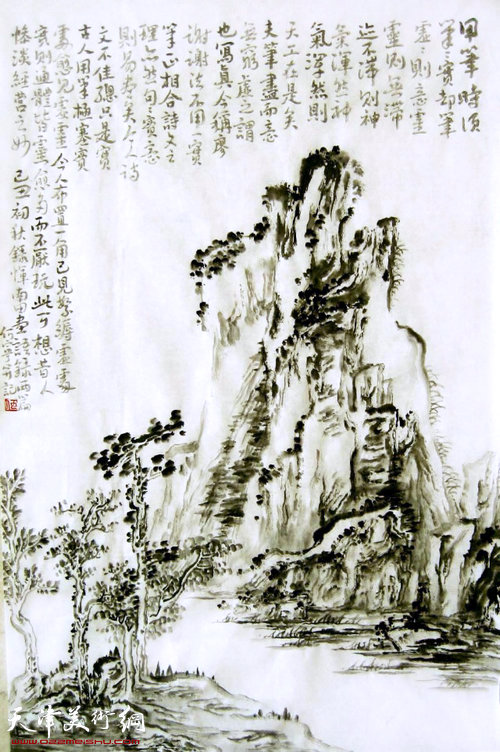 用筆時須
筆實却筆
虛〻則意靈
靈則無滯
迹不滯則神
氣渾然神
氣渾然則
天工在是矣
夫筆盡而意
無窮虛之謂
也寫真合稱廖
謝謝法不用一實
筆正相合詩文之
理亦然句〻實意
則為矣今人詩
文不佳總只是實
古人用筆極塞實
處愈見虛靈今人布置一角已見繁縟虛處
實則通體皆靈愈多而不厭玩此可想昔人
慘淡經營之妙 己丑初秋錄惲南田畫語錄兩篇
記
天津美術網
www.022meishu.com